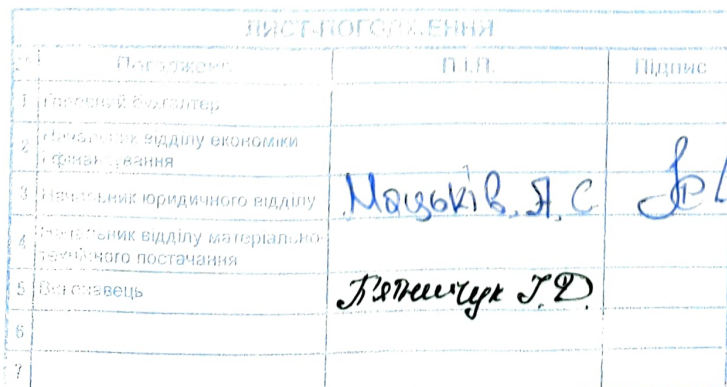 ЛИСТ-ПОГОДЖЕННЯ
Погоджено П.І.П. Підпис
1 Головний бухгалтер
2 Начальник відділу економіки
і фінансування
3 Начальник юридичного відділу Мацьків. Я. С
4 Начальник відділу матеріально-
технічного постачання
5 Виконавець П'ятничук Г.Д.
6
7